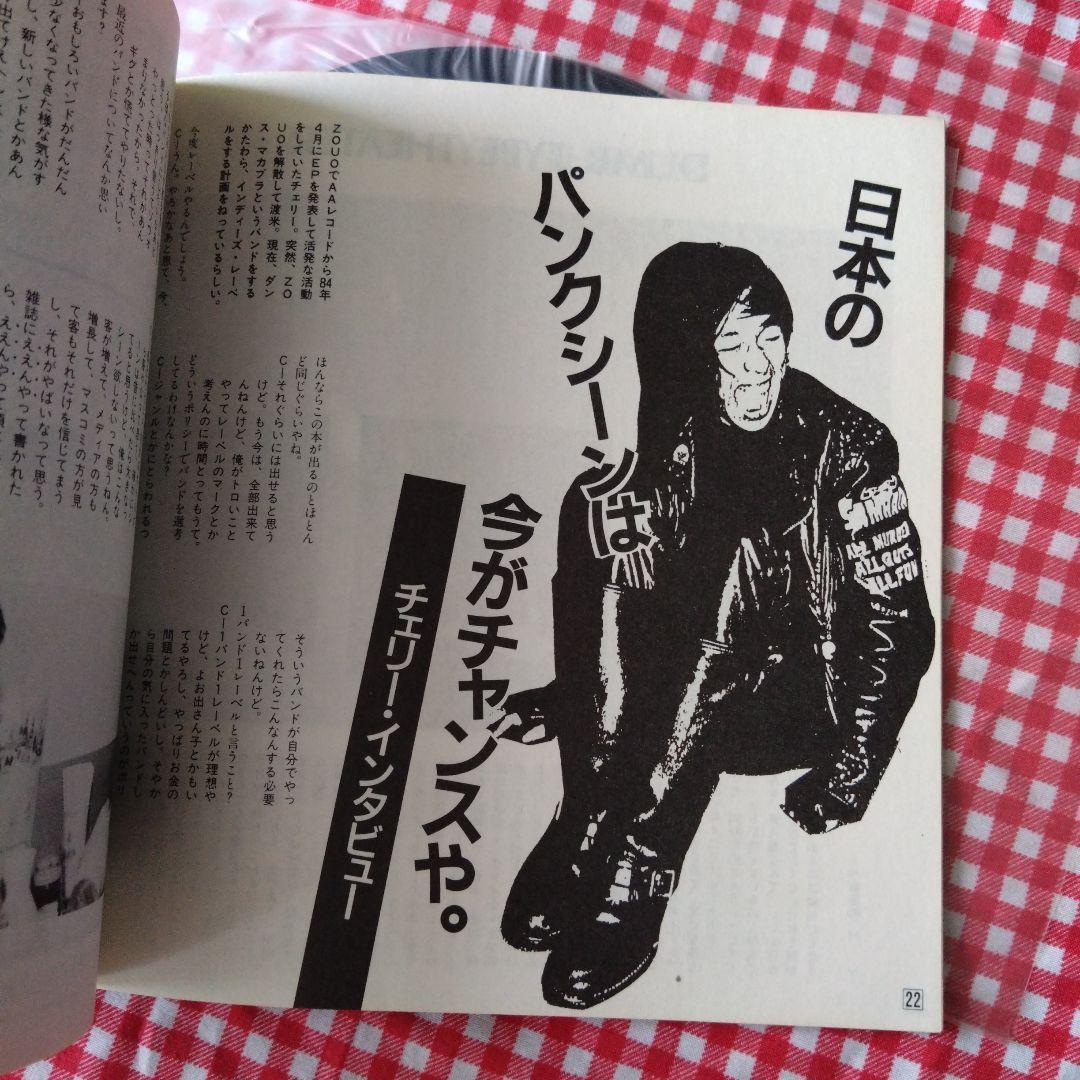 日本の
パンクシーンは
今がチャンスや。
チェリー・インタビュー
ZOUOでAAレコードから84年
4月にEPを発表して活発な活動
をしていたチェリー。突然、ZO
UOを解散して渡米。現在、ダン
ス・マカブラというバンドをする
かたわら、インディーズ・レーベ
ルをする計画をねっているらしい。
今度レーベルやるんでしょう。
ほんならこの本が出るのとほとん
ど同じぐらいやね。
C―それぐらいには出せると思う
けど。もう今は、全部出来て
んねんけど、俺がトロいこと
やってレーベルのマークとか
考えんのに時間とってもうて。
どういうポリシーでバンドを選考
してるわけなんかな？
C―ジャンルとかにとらわれるっ
そういうバンドが自分でやっ
てくれたらこんなんする必要
ないねんけど。
1バンド1レーベルと言うこと？
C―1バンド1レーベルが理想や
けど、よお出さん子とかもい
てるやろし、やっぱりお金の
問題とかしんどいし。そやか
ら自分の気に入ったバンドし
か出せへんっていうのが
22
最近のバンドについてなんか思い
ます？
おもしろいバンドがだんだん
少なくなってきた様な気がす
し、新しいバンドとかあん
シーン欲しないって思うねん。
客が増えて、メディアの方も
増長して、マスコミの方が見
て客もそれだけを信じてまう
し、それがやばいなって思う。
雑誌にええんやって書かれた
ら、ええんやって